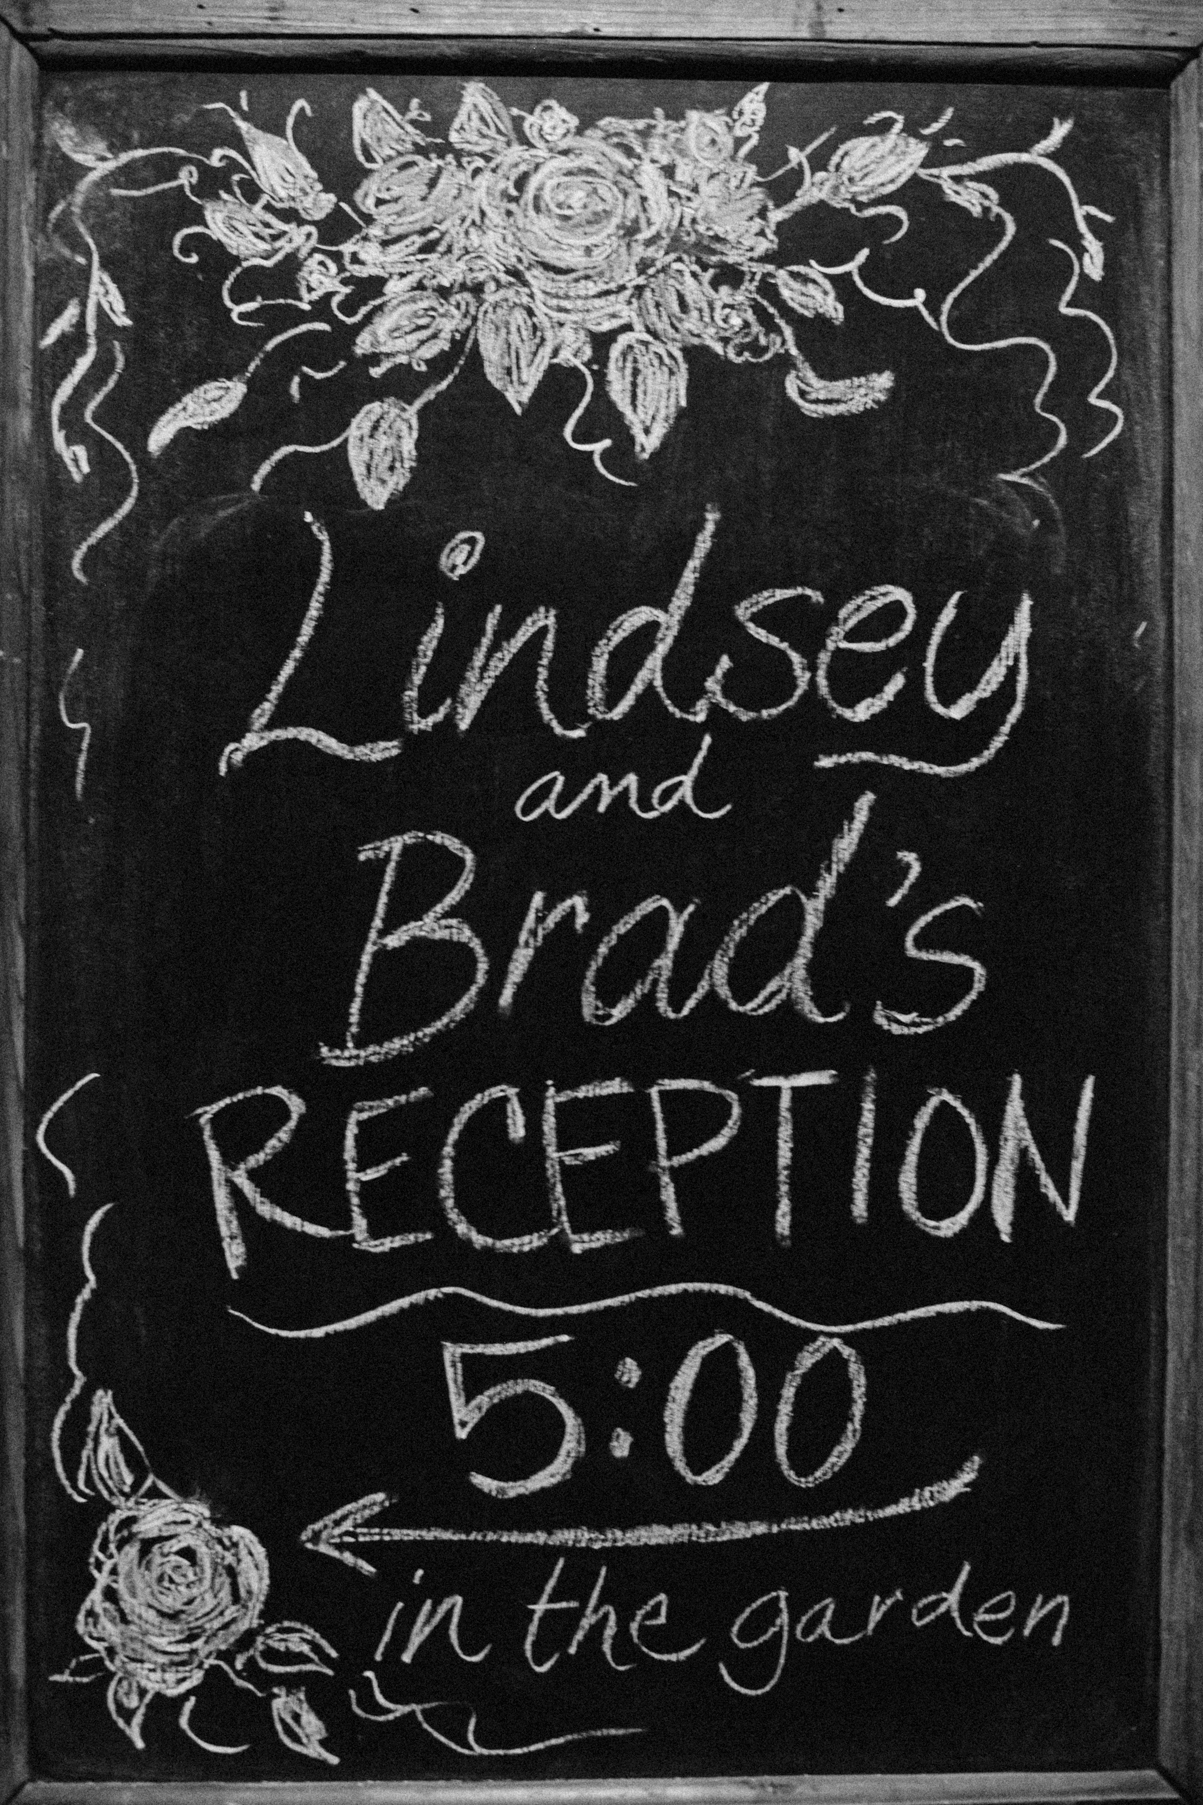 Lindsey
and
Brad's
RECEPTION
5:00
in the garden